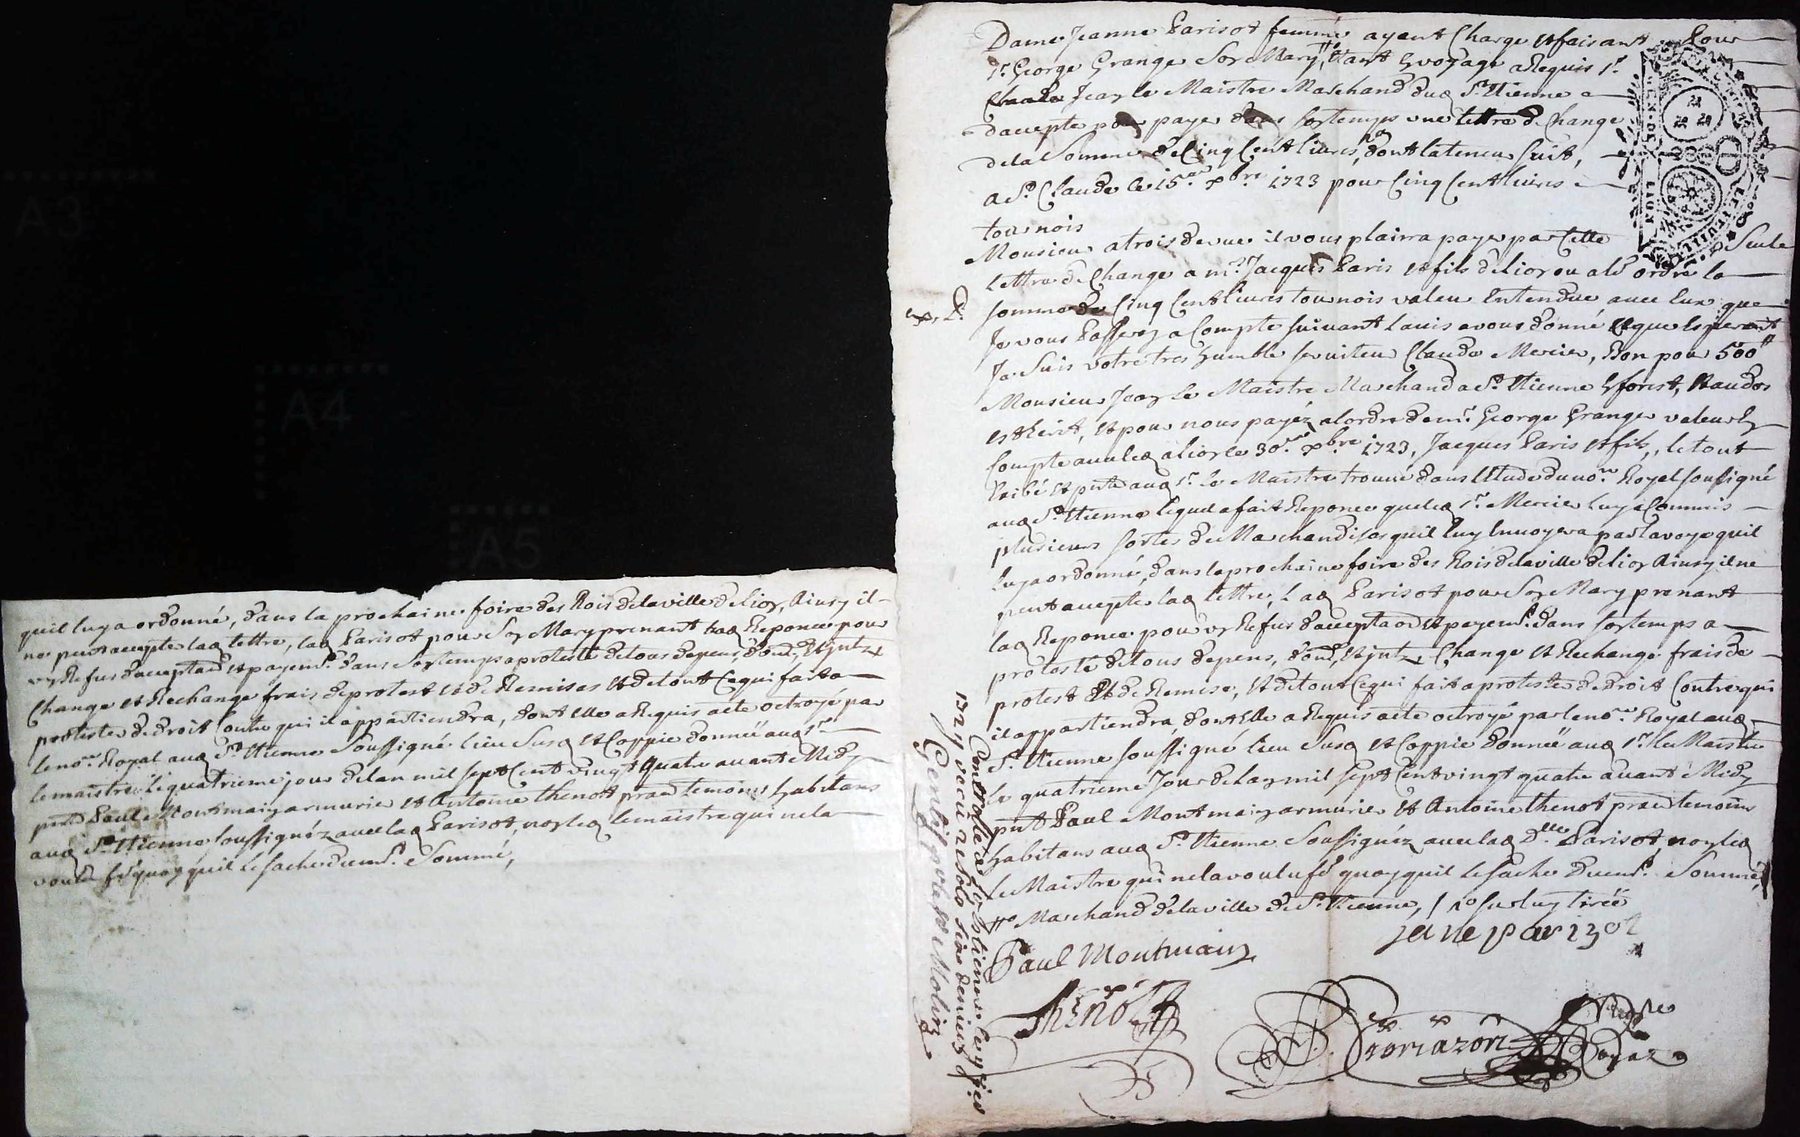 Dame Jeanne Parisot femme ayant Charge et faisant pour
Sr. George Grange Son Mary, # Etant En voyage a Requis Sr.
Jean le Maistre Marchand dud St. Etienne
d'accepter pour payer dans son temps une lettre de Change
de la Somme de Cinq Cent livres, dont la teneur suit,
a St. Claude ce 15.e xbre 1723 pour Cinq Cent livres
tournois
Monsieur a trois de vue il vous plaira payer par Cette Seule
lettre de Change a mr. Jacques Paris et fils de Lion ou a leur ordre la
somme de Cinq Cent livres tournois valeur Entendue avec Eux que
Je vous passerez a Compte suivant Lavis a vous donné et que Esperant
Je Suis votre tres humble serviteur Claude Mercier, Bon pour 500 #
Monsieur Jean Le Maistre Marchand a St. Etienne En forest, Et au dos
est Ecrit, Et pour nous payez a lordre de mr. George Grange valeur En
Compte avec led a Lion le 30.e xbre 1723, Jacques Paris et fils, le tout
Exibé et pnté aud Sr. Le Maistre trouvé dans l'Etude du nore. Royal soussigné
aud St. Etienne lequel a fait Reponce que led Sr. Mercier Luy a Commis
plusieurs sortes de Marchandises quil luy Envoyera par la voye quil
luy a ordonné, dans la prochaine foire des Rois de la ville de Lion Ainsy il ne
peut accepter lad lettre, Lad Parisot pour Son Mary prenant
lad Reponce pour un Refus d'acceptaon et payemt. dans son temps a
protesté de tous depens, dom, et jntz, Change et Rechange frais de
protest Et de Remise, et de tout Ce qui fait a protester de droit Contre qui
il appartiendra, dont Elle a Requis acte octroyé par le nore. Royal aud
St. Etienne soussigné lieu Susd et Coppie donnée aud Sr. Le Maistre
Le quatrieme Jour de Lan mil sept Cent vingt quatre avant Midy
pnt Paul Montmain armurier et Antoine Thenot praen temoins
habitans aud St. Etienne Soussignéz avec lad Dlle. Parisot, non led
Le Maistre qui ne la voulu fe. quoy quil le sache duemt. Sommé,
# Marchand de la ville de St. Etienne, / No sur luy tirée
Paul Montmain
jane parizot
Thenot
GEN. DE LYON
Controllé a St. Estienne le 7 jer
1724 recu neuf sols six deniers
quil luy a ordonné, dans la prochaine foire des Rois de la ville de Lion, Ainsy il
ne peut accepter lad lettre, lad Parisot pour Son Mary prenant lad Reponce pour
un Refus d'acceptaon et payemt. dans Son temps a protesté de tous depens, dom, Et jntz
Change et Rechange frais de protest et de Remises et de tout Ce qui fait a
protester de droit Contre qui il appartiendra, dont Elle a Requis acte octroyé par
le nore. Royal aud St. Etienne Soussigné lieu Susd et Coppie donnée aud Sr.
le maistre le quatrieme jour de lan mil sept Cent vingt quatre avant Midy
pnt Paul Montmain armurier et Antoine thenot praen temoins habitans
aud St. Etienne soussignéz avec lad Parisot, non led le maistre qui ne la
voulu fe. quoy quil le sache duemt. Sommé,
A3
A4
A5